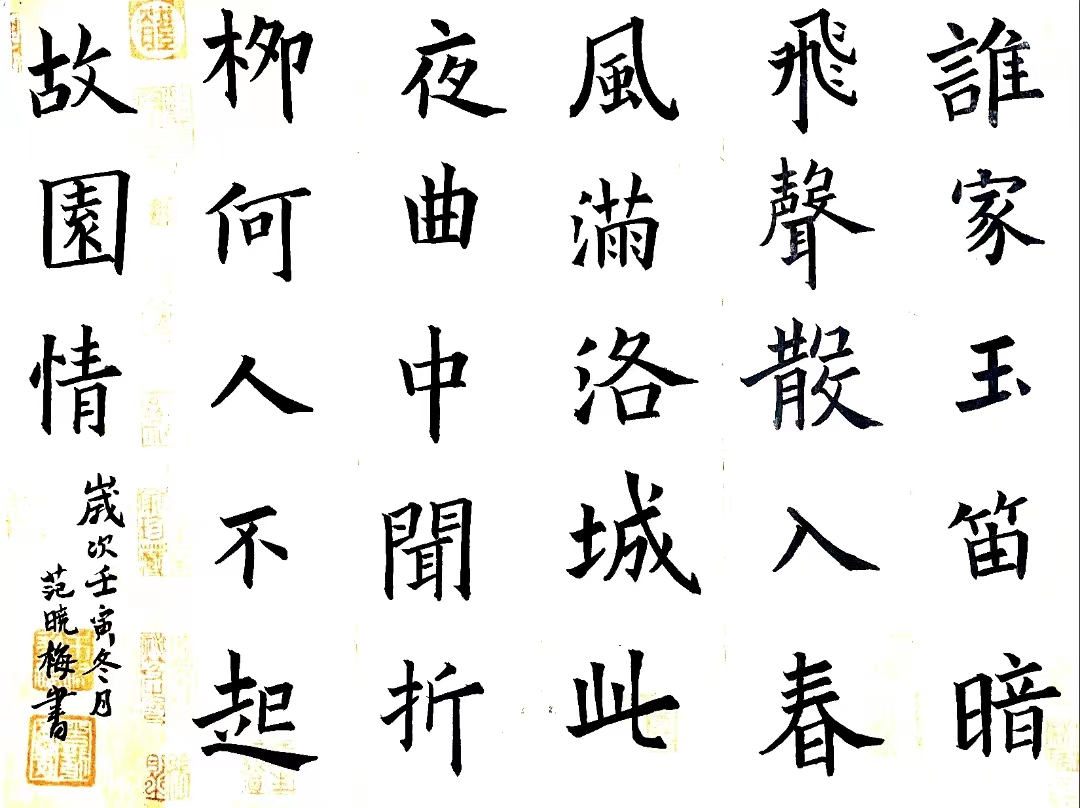 誰家玉笛暗
飛聲散入春
風滿洛城此
夜曲中聞折
柳何人不起
故園情
歲次壬寅冬月
范曉梅書